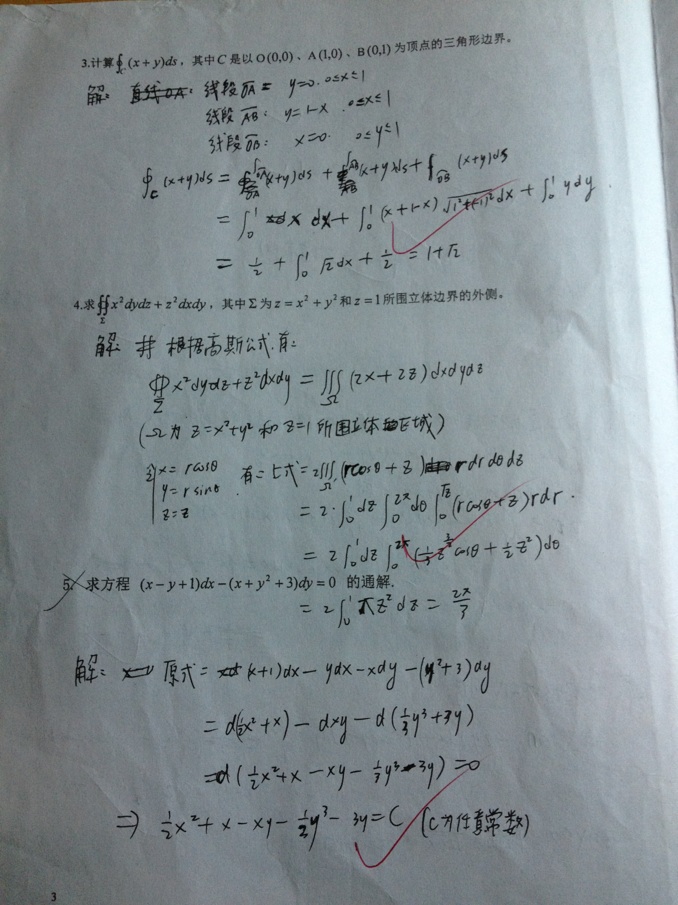 3.计算∮_C (x+y)ds，其中C是以O(0,0)、A(1,0)、B(0,1)为顶点的三角形边界。
解: 线段OA: y=0. 0≤x≤1
线段AB: y=1-x .0≤x≤1
线段OB: x=0. 0≤y≤1
∮_C (x+y)ds = ∫_OA (x+y)ds + ∫_AB (x+y)ds + ∫_OB (x+y)ds
= ∫₀¹ x dx + ∫₀¹ (x+1-x) √(1²+(-1)²) dx + ∫₀¹ ydy.
= 1/2 + ∫₀¹ √2 dx + 1/2 = 1+√2
4.求∯_Σ x²dydz+z²dxdy，其中Σ为z=x²+y²和z=1所围立体边界的外侧。
解: 根据高斯公式.有:
∯_Σ x²dydz+z²dxdy = ∭_Ω (2x+2z)dxdydz
(Ω为 z=x²+y² 和 z=1 所围立体区域)
令{x=rcosθ 有: 上式=2∭_Ω (rcosθ+z) rdrdθdz
y=rsinθ
z=z
= 2·∫₀¹dz ∫₀^2π dθ ∫₀^√z (rcosθ+z)rdr.
= 2∫₀¹dz ∫₀^2π (1/3 z^(3/2) cosθ + 1/2 z²)dθ
5. 求方程 (x-y+1)dx-(x+y²+3)dy=0 的通解.
= 2∫₀¹ πz²dz = 2π/3
解: 原式= (x+1)dx - ydx - xdy - (y²+3)dy
= d(1/2x²+x) - dxy - d(1/3y³+3y)
= d(1/2x²+x-xy-1/3y³-3y) = 0
⇒ 1/2x²+x-xy-1/3y³-3y=C (C为任意常数)
3